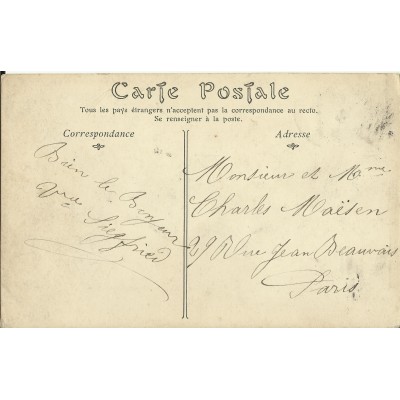 Carte Postale
Tous les pays étrangers n'acceptent pas la correspondance au recto.
Se renseigner à la poste.
Correspondance
Bien le Bonjour
Vve Siegfried
Adresse
Monsieur et Mme
Charles Maësen
29 Rue Jean Beauvais
Paris